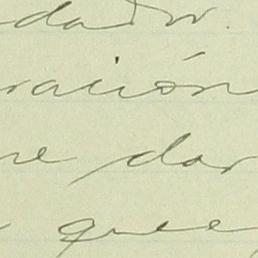 dador.
ración
ne dar
que